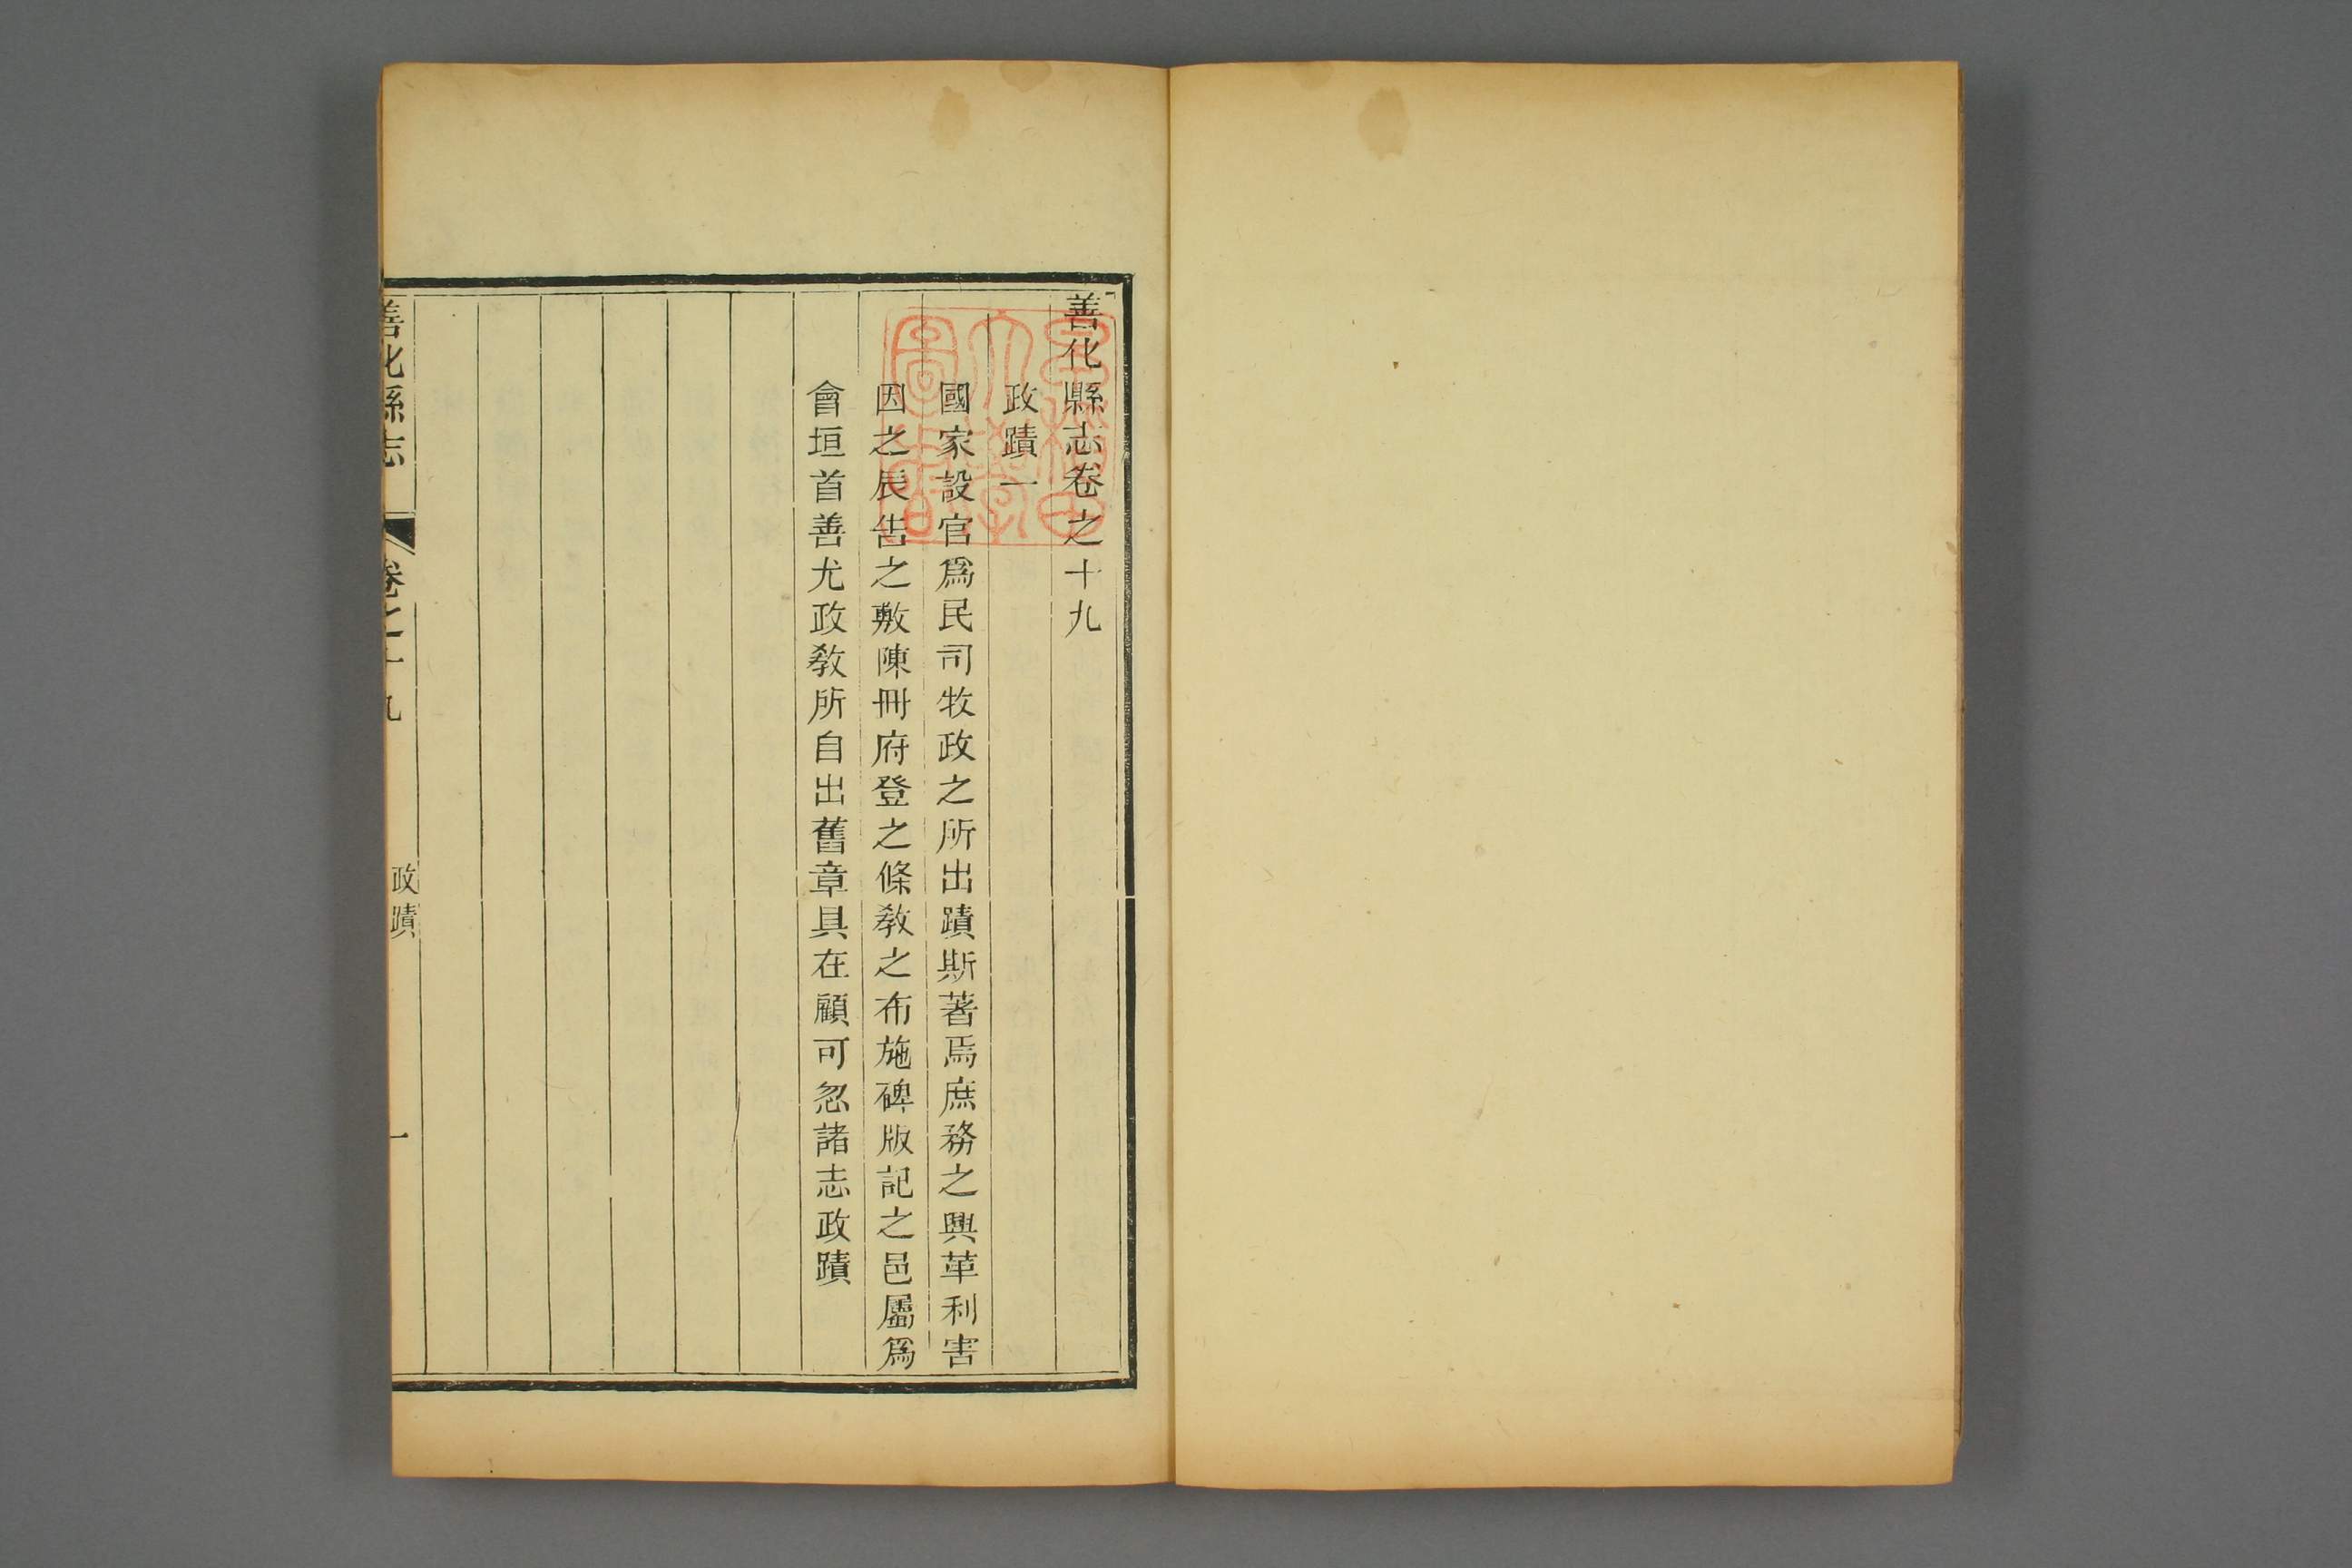 善化縣志卷之十九
政蹟一
國家設官爲民司牧政之所出蹟斯著焉庶務之興革利害
因之辰告之敷陳冊府登之條敎之布施碑版記之邑屬爲
會垣首善尤政敎所自出舊章具在顧可忽諸志政蹟
善化縣志
卷之十九
政蹟
一
早稻田大學圖書